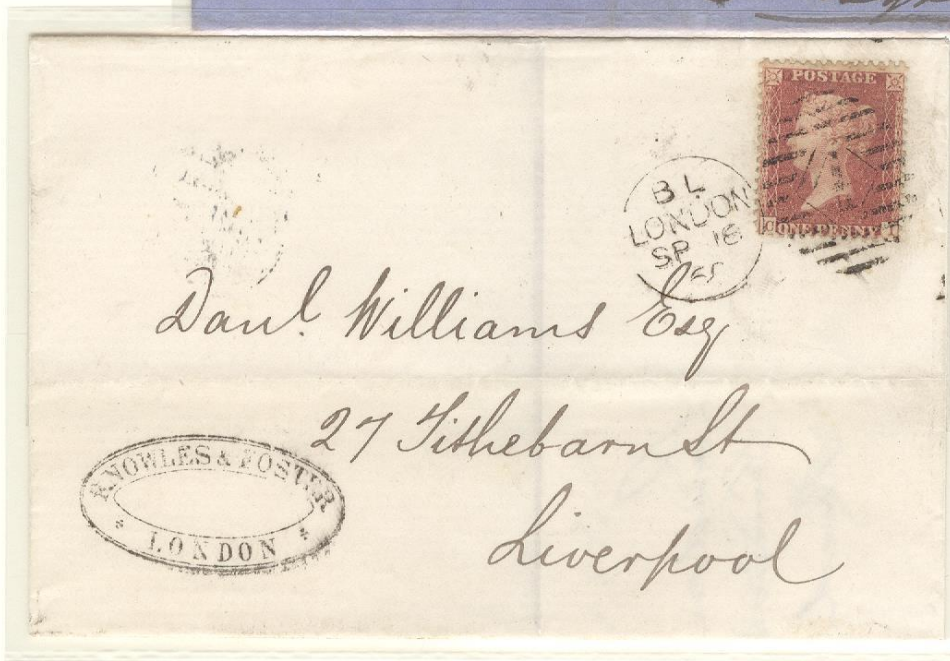 POSTAGE
C ONE PENNY
B L
LONDON
SP 16
65
Danl. Williams Esq
27 Tithebarn St
Liverpool
KNOWLES & FOSTER
* LONDON *